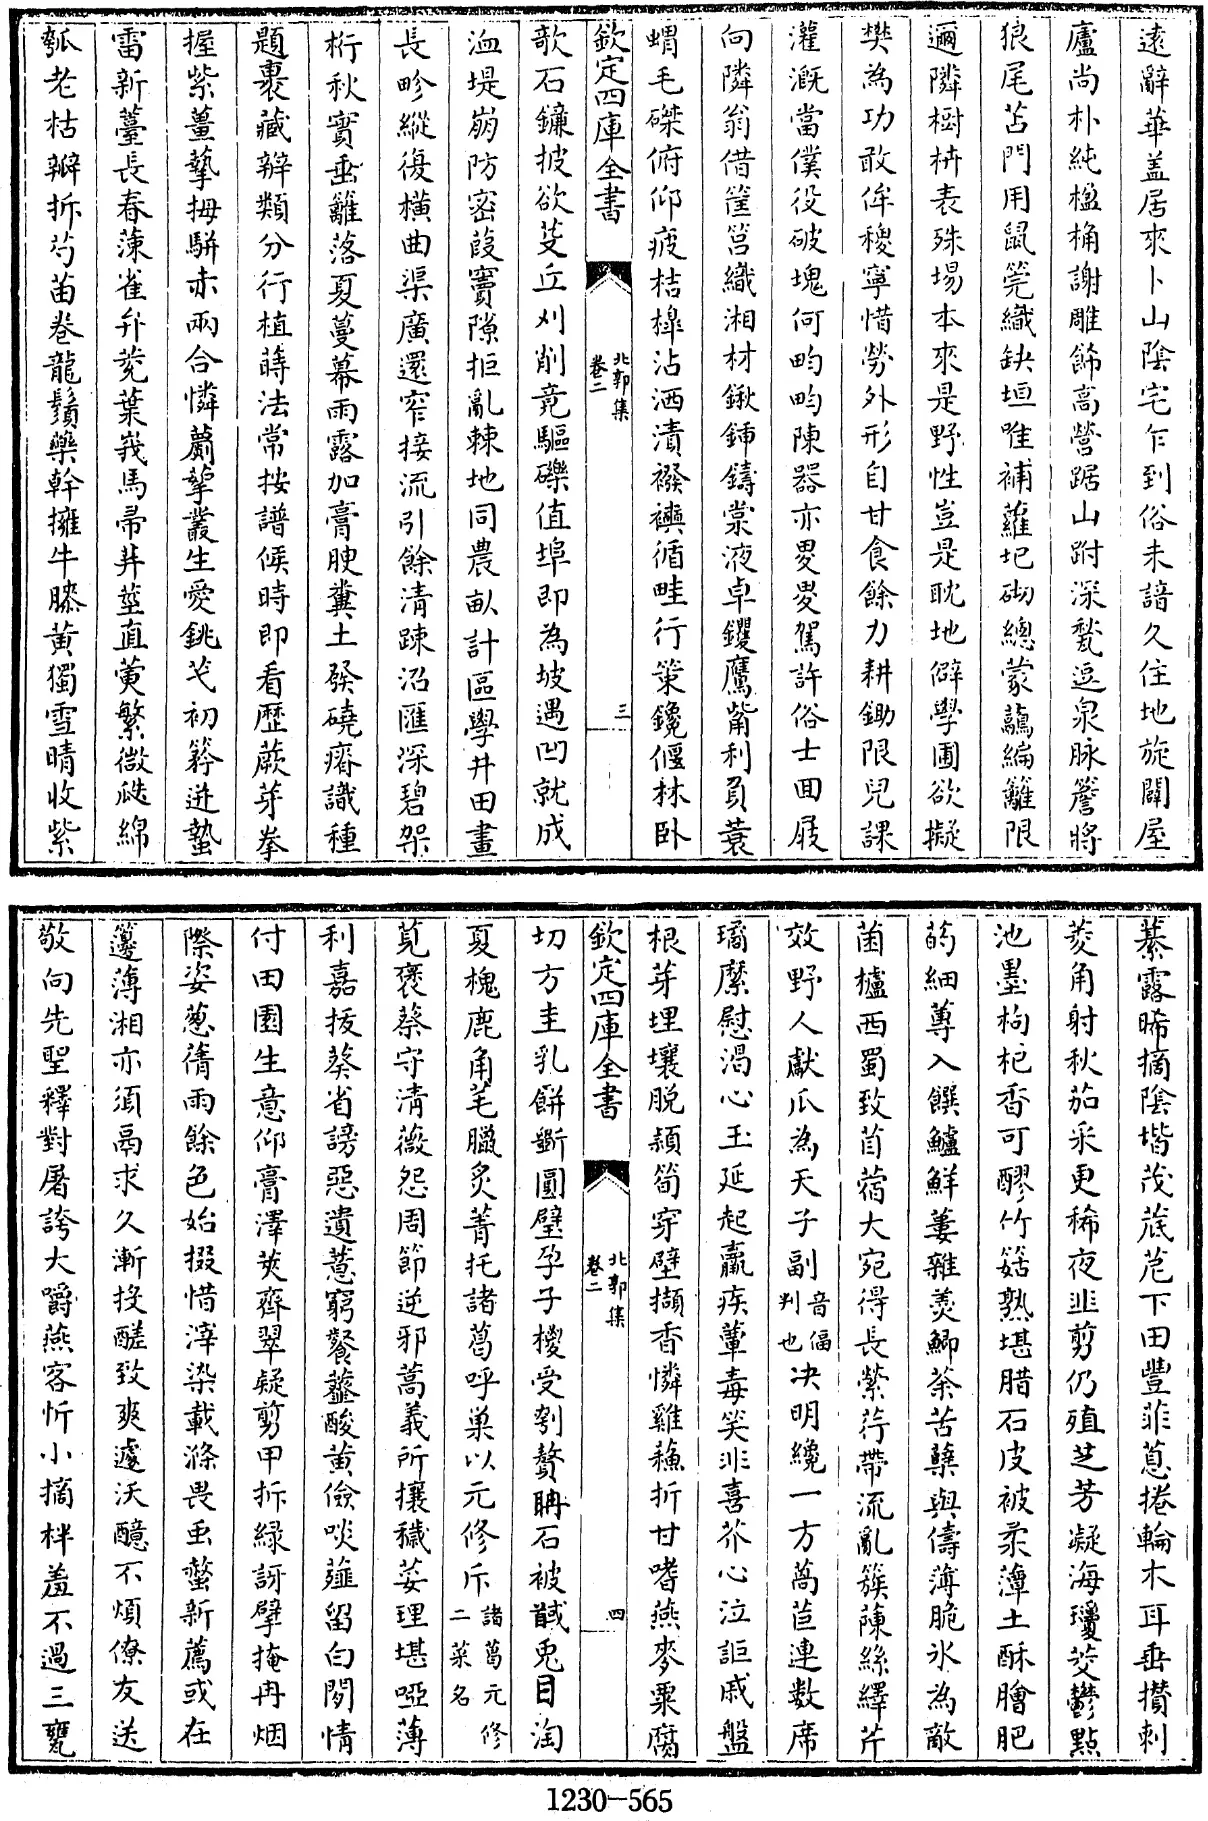 遠辭華盖居來卜山陰宅乍到俗未諳久住地旋闢屋
廬尚朴純楹桷謝雕飾高營踞山跗深甃逗泉脉簷將
狼尾苫門用鼠筦織缺垣唯補蘿圮砌總蒙虉編籬限
邇隣樹枿表殊埸本來是野性豈是耽地僻學圃欲擬
樊為功敢侔稷寧惜勞外形自甘食餘力耕鋤限兒課
灌溉當僕役破塊何畇畇陳器亦畟畟駕許俗士回屐
向隣翁借篚筥織湘材鍬鍤鑄棠液卓钁鷹觜利負蓑
蝟毛磔俯仰疲桔槹沾洒漬襏襫循畦行荷鑱偃林卧
欽定四庫全書
北郭集
卷二
三
歌石鐮披欲芟丘刈削竟驅礫值埠即為坡遇凹就成
洫堤崩防密葭竇隙拒亂棘地同農畝計區學井田畫
長畛縱復橫曲渠廣還窄接流引餘清踈沼匯深碧架
桁秋實垂籬落夏蔓幕雨露加膏腴糞土發磽瘠識種
題裹藏辨類分行植蒔法常按譜候時即看歷蕨芽拳
握紫薑摯拇駢赤兩合憐蘮挐叢生愛銚芅初簵迸蟄
雷新薹長春藗雀弁荒葉峩馬帚荓莖直萸繁微瓞綿
瓠老枯瓣拆芍苗卷龍鬚藥幹擁牛膝黄獨雪晴收紫
綦露晞摘陰堦茂菧苨下田豐菲蒠捲輪木耳垂攢刺
菱角射秋茄采更稀夜韭剪仍殖芝芳凝海瓊芡鬱點
池墨枸杞香可醪竹菇熟堪腊石皮被柔薄土酥膾肥
菂細蓴入饌鱸鮮蔞雜羮鯽荼苦蘖與儔薄脆氷為敵
菌櫨西蜀致苜蓿大宛得長縈荇帶流亂簇蔯絲繹芹
效野人獻瓜為天子副音偪判也决明纔一方萵苣連數席
璚縻慰渴心玉延起羸疾蕈毒笑非喜芥心泣詎戚盤
根芽埋壤脱穎筍穿壁擷香憐雞蘓折甘嗜燕麥粟腐
欽定四庫全書
北郭集
卷二
四
切方圭乳餅斲圓璧孕子櫻受刳贅聃石被馘兎目淘
夏槐鹿角芼臘炙菁托諸葛呼巢以元修斥諸葛元修二菜名
莧褒蔡守清薇怨周節逆邪蒿義所攘穢荽理堪啞薄
利嘉拔葵省謗惡遺薏窮餮虀酸黄儉啖薤留白閑情
付田園生意仰膏澤莢齊翠疑剪甲拆緑訝擘掩冉烟
際姿蔥蒨雨餘色始掇惜滓染載滌畏虫螫新薦或在
籩薄湘亦須鬲求久漸投醝致爽遽沃醷不煩僚友送
敬向先聖釋對屠誇大嚼燕客忻小摘柈羞不過三甕
1230-565